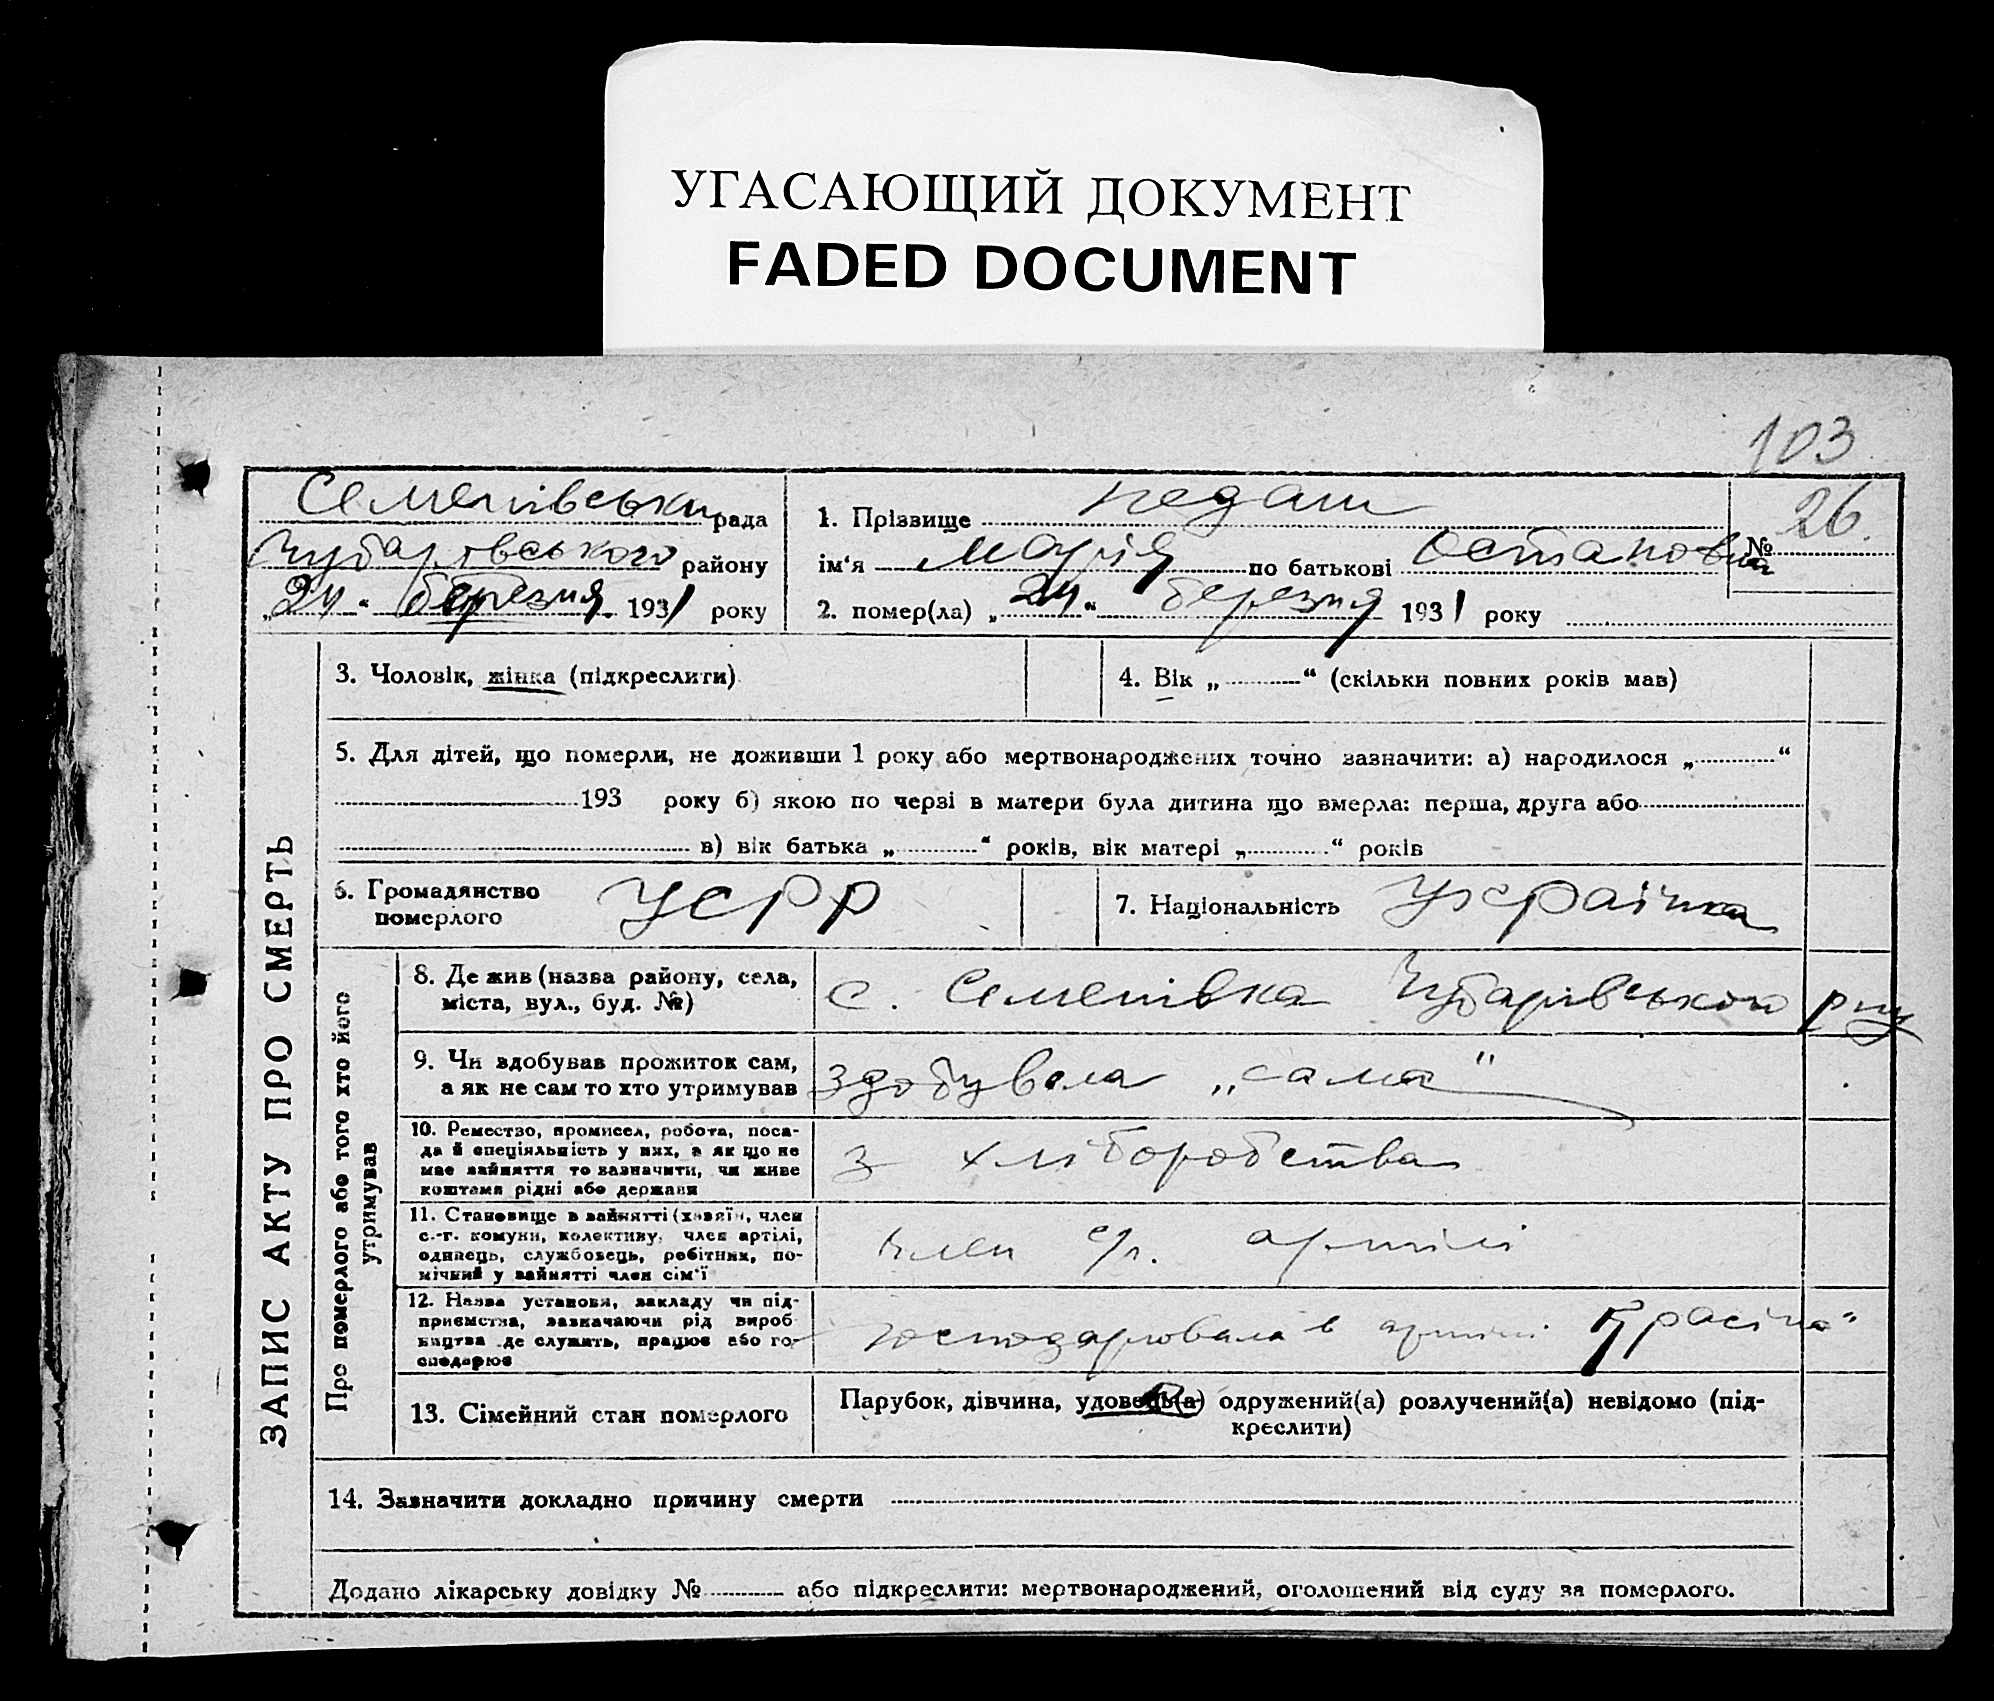 УГАСАЮЩИЙ ДОКУМЕНТ
FADED DOCUMENT
103
Семенівська рада
Чубарівського району
„24“ березня 1931 року
1. Прізвище Недаш
ім‘я Марія по батькові Остаповна
2. помер(ла) „24“ березня 1931 року
№ 26.
ЗАПИС АКТУ ПРО СМЕРТЬ
3. Чоловік, жінка (підкреслити)
4. Вік „ “ (скільки повних років мав)
5. Для дітей, що померли, не доживши 1 року або мертвонароджених точно зазначити: а) народилося „ “
193 року б) якою по черзі в матери була дитина що вмерла: перша, друга або
в) вік батька „ “ років, вік матері „ “ років
6. Громадянство
померлого
УСРР
7. Національність Українка
Про померлого або того хто його
утримував
8. Де жив (назва району, села,
міста, вул., буд. №)
с. Семенівка Чубарівського р-ну
9. Чи здобував прожиток сам,
а як не сам то хто утримував
здобувала „сама“
10. Ремество, промисел, робота, поса-
да й спеціяльність у них, а як що не
має зайняття то зазначити, чи живе
коштами рідні або держави
З хліборобства
11. Становище в зайнятті (хазяїн, член
с.-г. комуни, колективу, член артілі,
одинець, службовець, робітник, по-
мічний у зайнятті член сім‘ї
член с/г. артілі
12. Назва установи, закладу чи під-
приємства, зазначаючи рід вироб-
ництва де служить, працює або го-
сподарює
господарювала в артілі
13. Сімейний стан померлого
Парубок, дівчина, удовець(а) одружений(а) розлучений(а) невідомо (під-
креслити)
14. Зазначити докладно причину смерти
Додано лікарську довідку № або підкреслити: мертвонароджений, оголошений від суду за померлого.